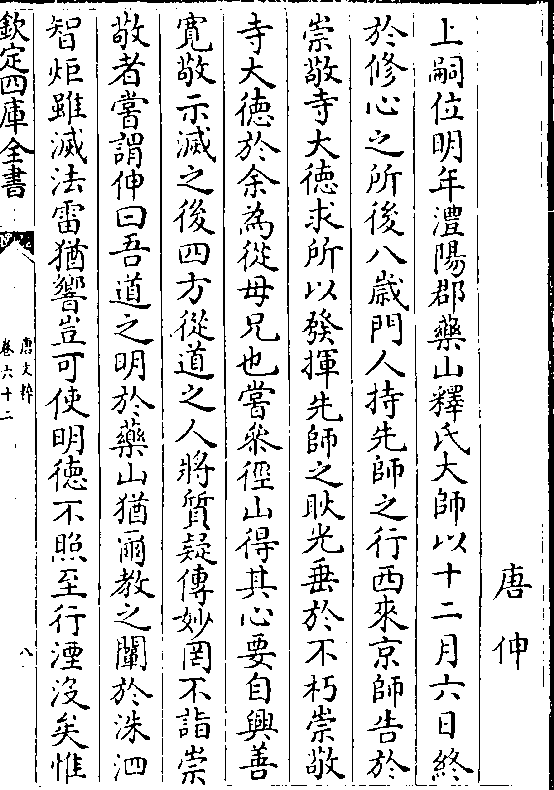 唐伸
上嗣位明年澧陽郡藥山釋氏大師以十二月六日終
於修心之所後八歲門人持先師之行西來京師告於
崇敬寺大德求所以發揮先師之耿光垂於不朽崇敬
寺大德於余為從母兄也嘗叅徑山得其心要自興善
寛敬示滅之後四方從道之人將質疑傳妙罔不詣崇
敬者嘗謂伸曰吾道之明於藥山猶爾教之闡於洙泗
智炬雖滅法雷猶響豈可使明德不照至行湮沒矣惟
欽定四庫全書
唐文粹
卷六十二
八